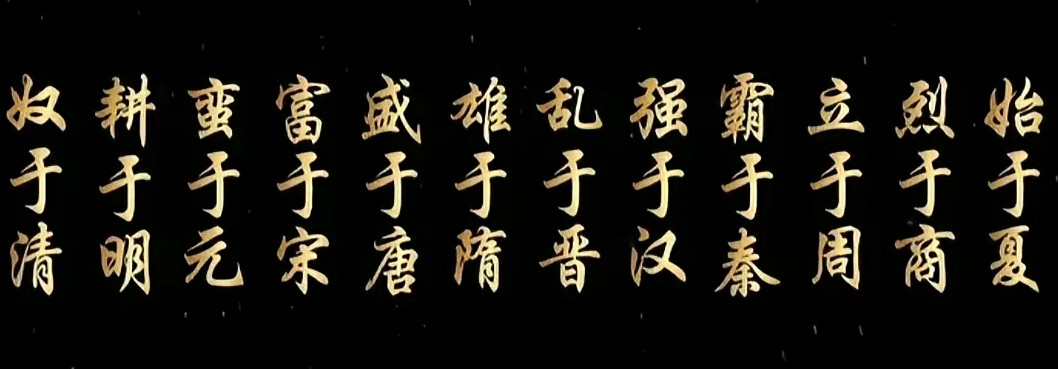 始于夏
烈于商
立于周
霸于秦
强于汉
乱于晋
雄于隋
盛于唐
富于宋
蛮于元
耕于明
奴于清